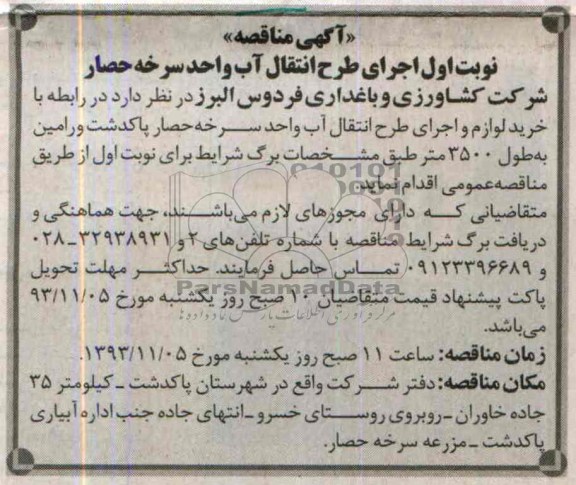 «آگهی مناقصه»
نوبت اول اجرای طرح انتقال آب واحد سرخه حصار
شرکت کشاورزی و باغداری فردوس البرز در نظر دارد در رابطه با
خرید لوازم و اجرای طرح انتقال آب واحد سرخه حصار پاکدشت ورامین
به‌طول ۳۵۰۰ متر طبق مشخصات برگ شرایط برای نوبت اول از طریق
مناقصه‌عمومی اقدام نماید.
متقاضیانی که دارای مجوزهای لازم می‌باشند، جهت هماهنگی و
دریافت برگ شرایط مناقصه با شماره تلفن‌های ۲ و ۳۲۹۳۸۹۳۱-۰۲۸
و ۰۹۱۲۳۳۹۶۶۸۹ تماس حاصل فرمایند. حداکثر مهلت تحویل
پاکت پیشنهاد قیمت متقاضیان ۱۰ صبح روز یکشنبه مورخ ۹۳/۱۱/۰۵
می‌باشد.
زمان مناقصه: ساعت ۱۱ صبح روز یکشنبه مورخ ۱۳۹۳/۱۱/۰۵.
مکان مناقصه: دفتر شرکت واقع در شهرستان پاکدشت ـ کیلومتر ۳۵
جاده خاوران ـ روبروی روستای خسرو ـ انتهای جاده جنب اداره آبیاری
پاکدشت ـ مزرعه سرخه حصار.
ParsNamadData
مرکز فرآوری اطلاعات پارس نماد داده‌ها